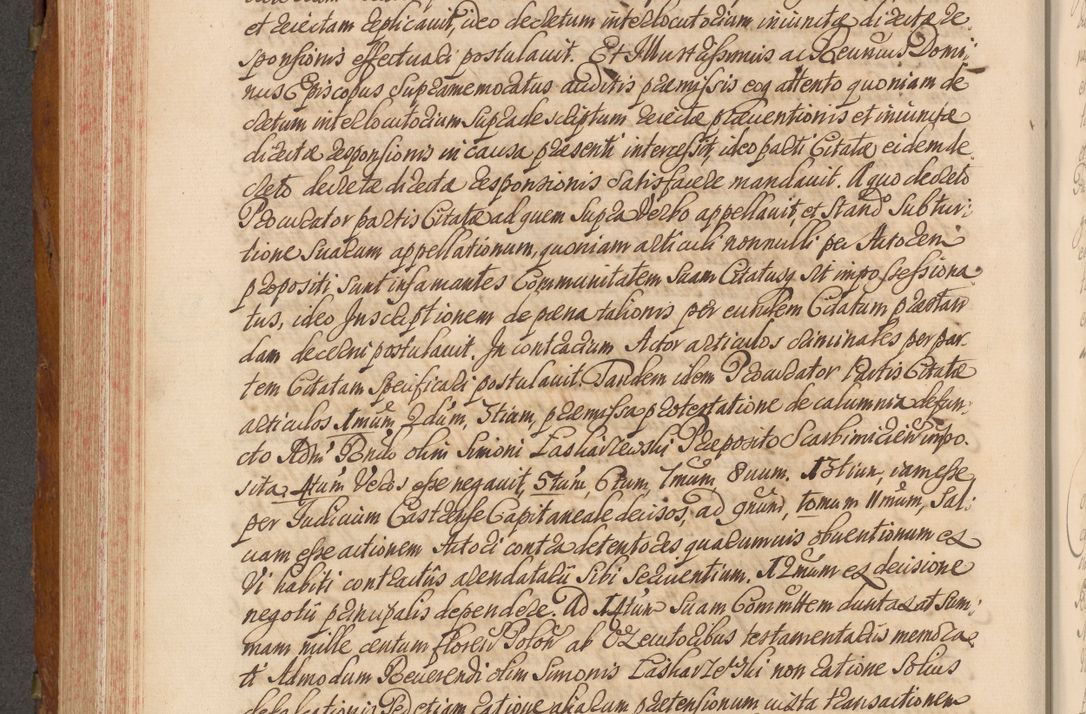 et directam replicavit, ideo decretum interlocutorium iniunctæ directæ re
sponsionis effectuari postulavit. Et Illustrissimus ac Rev̄mus Domi¬
nus Episcopus Supramemoratus auditis præmissis eoq attento quoniam de
cretum interlocutorium supradescriptum reiectæ præventionis et iniunctæ
directæ responsionis in causa præsenti intercessit, ideo parti Citatæ eidem de
creto de recta directa responsionis satisfacere mandavit. A quo decreto
Procurator partis Citatæ ad quem supra Verbo appellavit, et Stand Sub tui¬
tione Suarum appellationum, quoniam articuli nonnulli per Actorem
propositi sunt infamantes Communitatem suam Citatusq sit impossessiona
tus, ideo Inscriptionem de pæna talionis per eundem Citatum præstan
dam decerni postulavit. In contrarium Actor articulos criminales per par
tem Citatam specificari postulavit. Tandem idem Procurator Partis Citatæ
articulos 1mum 2dum, 3tium, præmissa protestatione de calumnia defun
cto Adm̄ Rendo olim Simoni Laskarzewski Præposito Skarbimirien impo
sita, 4tum Veros esse negavit, 5tum, 6tum, 7mum, 8vum. 13tium, iam esse
per Iudicium Castrense Capitaneale decisos, ad 9num, 10mum 11mum, Sal¬
vam esse actionem Actori contra detentores quarumvis obventionum ex
Vi habiti contractūs arendatarii sibi servientium. 12mum ex decisione
negotii principalis dependere. Ad 14tum Suam Committem duntaxat Sum¬
mam mille centum floren Polon ab Executoribus testamentariis memora
ti Admodum Reverendi olim Simonis Laskarzewski non ratione solius